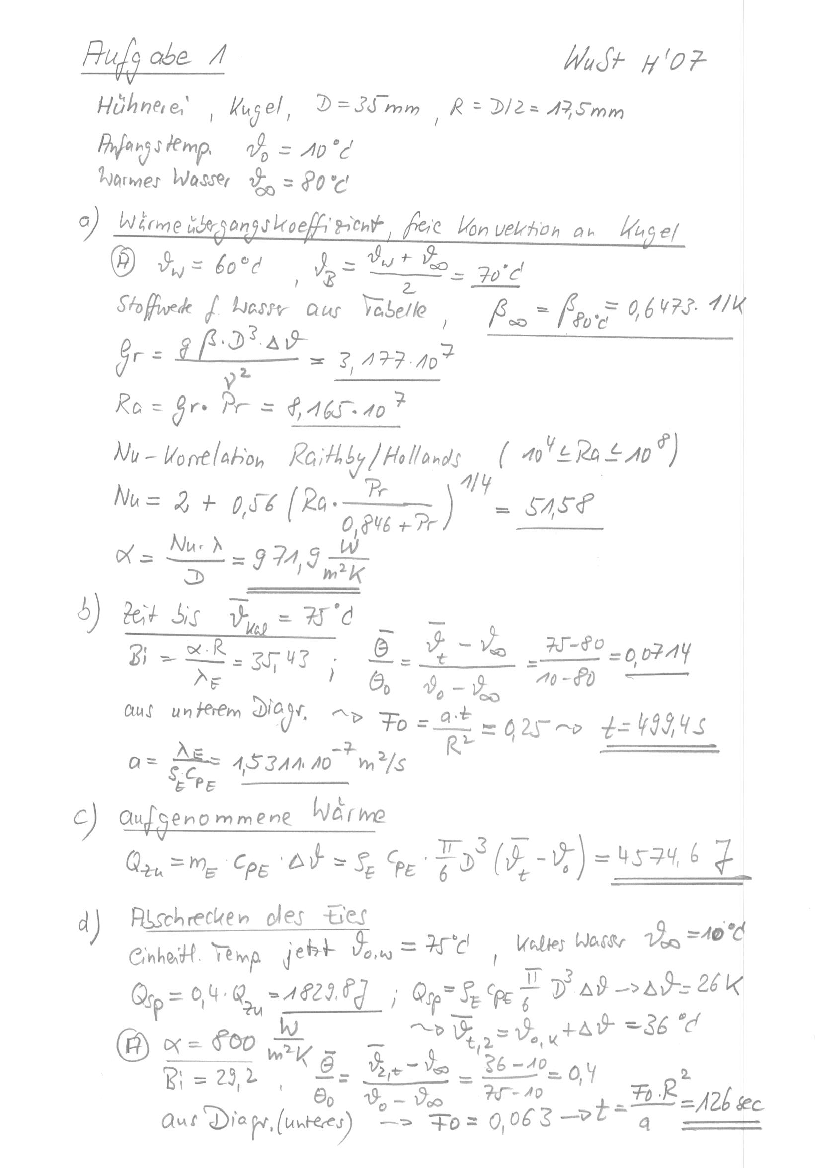 Aufgabe 1 WuSt H'07
Hühnerei, Kugel, D = 35 mm, R = D/2 = 17,5 mm
Anfangstemp. ϑ₀ = 10°C
Warmes Wasser ϑ∞ = 80°C
a) Wärmeübergangskoeffizient, freie Konvektion an Kugel
(A) ϑ_W = 60°C, ϑ_B = (ϑ_W + ϑ∞)/2 = 70°C
Stoffwerte f. Wasser aus Tabelle, β∞ = β_80°C = 0,6473 · 1/K
Gr = g β·D³·Δϑ/ν² = 3,177·10⁷
Ra = Gr·Pr = 8,165·10⁷
Nu-Korrelation Raithby/Hollands (10⁴ ≤ Ra ≤ 10⁸)
Nu = 2 + 0,56 (Ra · Pr/(0,846 + Pr))^1/4 = 51,58
α = Nu·λ/D = 971,9 W/m²K
b) Zeit bis ϑ̄_kal = 75°C
Bi = α·R/λ_E = 35,43 ; Θ̄/Θ₀ = (ϑ̄_t − ϑ∞)/(ϑ₀ − ϑ∞) = (75−80)/(10−80) = 0,0714
aus unterem Diagr. ⤳ Fo = a·t/R² = 0,25 ⤳ t = 499,4 s
a = λ_E/(ρ_E c_PE) = 1,5311·10⁻⁷ m²/s
c) aufgenommene Wärme
Q_zu = m_E · c_PE · Δϑ = ρ_E c_PE · π/6 D³ (ϑ̄_t − ϑ₀) = 4574,6 J
d) Abschrecken des Eies
Einheitl. Temp jetzt ϑ₀,w = 75°C, kaltes Wasser ϑ∞ = 10°C
Q_sp = 0,4·Q_zu = 1829.8 J ; Q_sp = ρ_E c_PE π/6 D³ Δϑ → Δϑ = 26 K
⤳ ϑ̄_t,2 = ϑ₀,K + Δϑ = 36°C
(A) α = 800 W/m²K
Bi = 29,2, Θ̄/Θ₀ = (ϑ̄_2,t − ϑ∞)/(ϑ₀ − ϑ∞) = (36−10)/(75−10) = 0,4
aus Diagr. (unteres) → Fo = 0,063 → t = Fo·R²/a = 126 sec